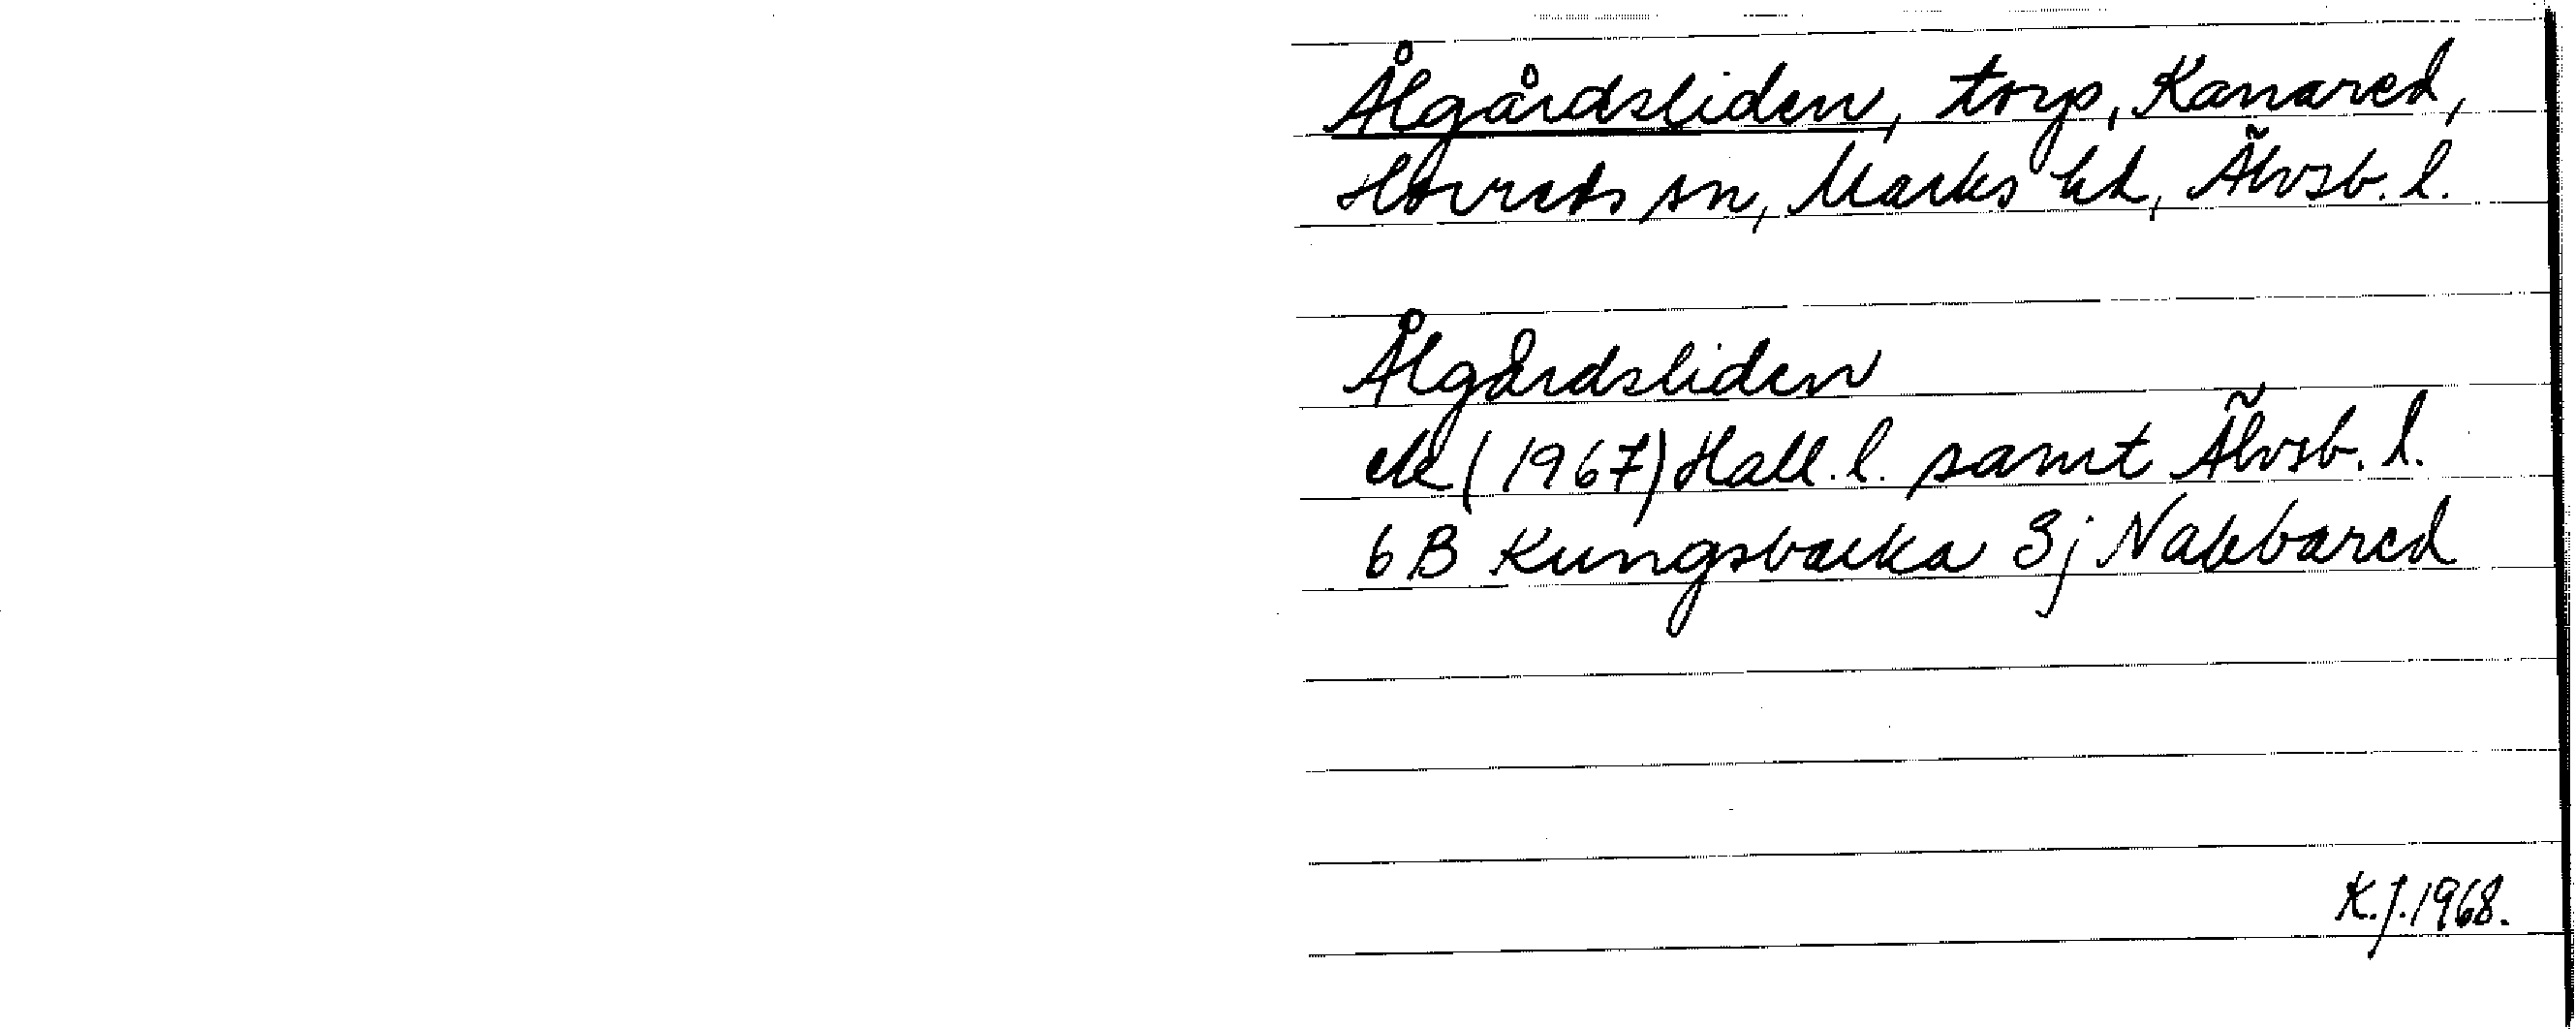 Ålgårdsliden, torp, Kanared,
Horreds sn, Marks hd, Älvsb. l.
Ålgårdsliden
ek (1967) Hall. l. samt Älvsb. l.
6 B Kungsbacka 3 j Nabbared
K.J. 1968.